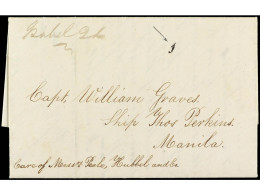 Isabel 2da
1
Capt. William Graves
Ship Thos Perkins
Manila.
Care of Messrs Peele, Hubbell and Co